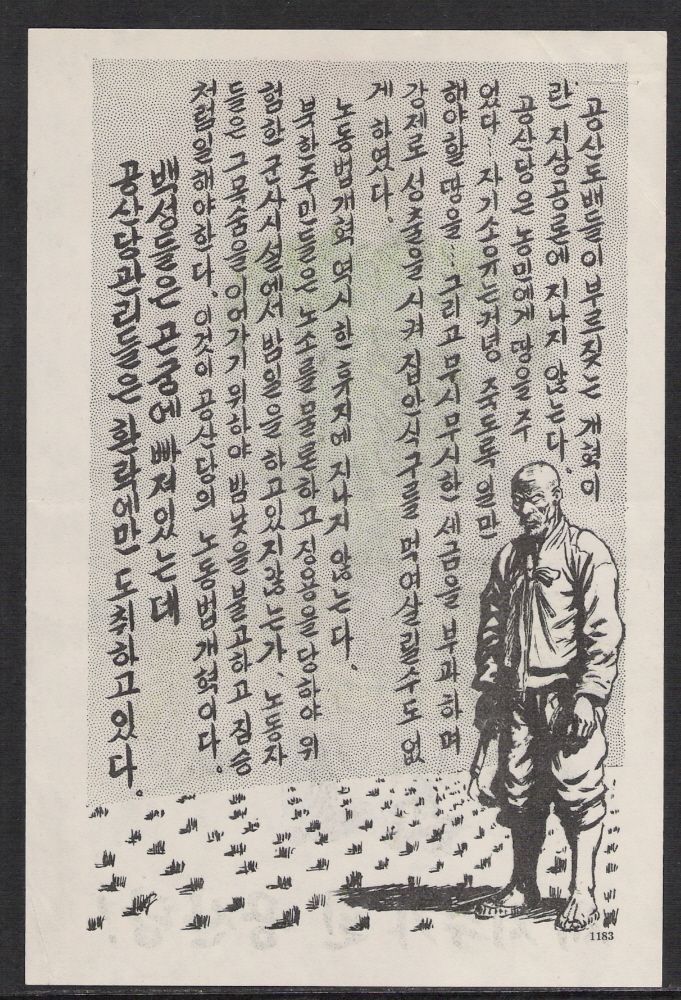 공산도배들이 부르짖는 개혁이
란 지상공론에 지나지 않는다.
공산당은 농민에게 땅을 주
었다. 자기소유는커녕 죽도록 일만
해야할 땅을… 그리고 무시무시한 세금을 부과하며
강제로 성출을 시켜 집안식구를 먹여살릴수도 없
게 하였다.
노동법개혁 역시 한 휴지에 지나지 않는다.
북한주민들은 노소를 물론하고 징용을당하야 위
험한 군사시설에서 밤일을 하고있지않는가. 노동자
들은 그목숨을 이어가기 위하야 밤낮을 불고하고 짐승
처럼일해야한다. 이것이 공산당의 노동법개혁이다.
백성들은 곤궁에 빠져있는데
공산당관리들은 환락에만 도취하고있다.
1183